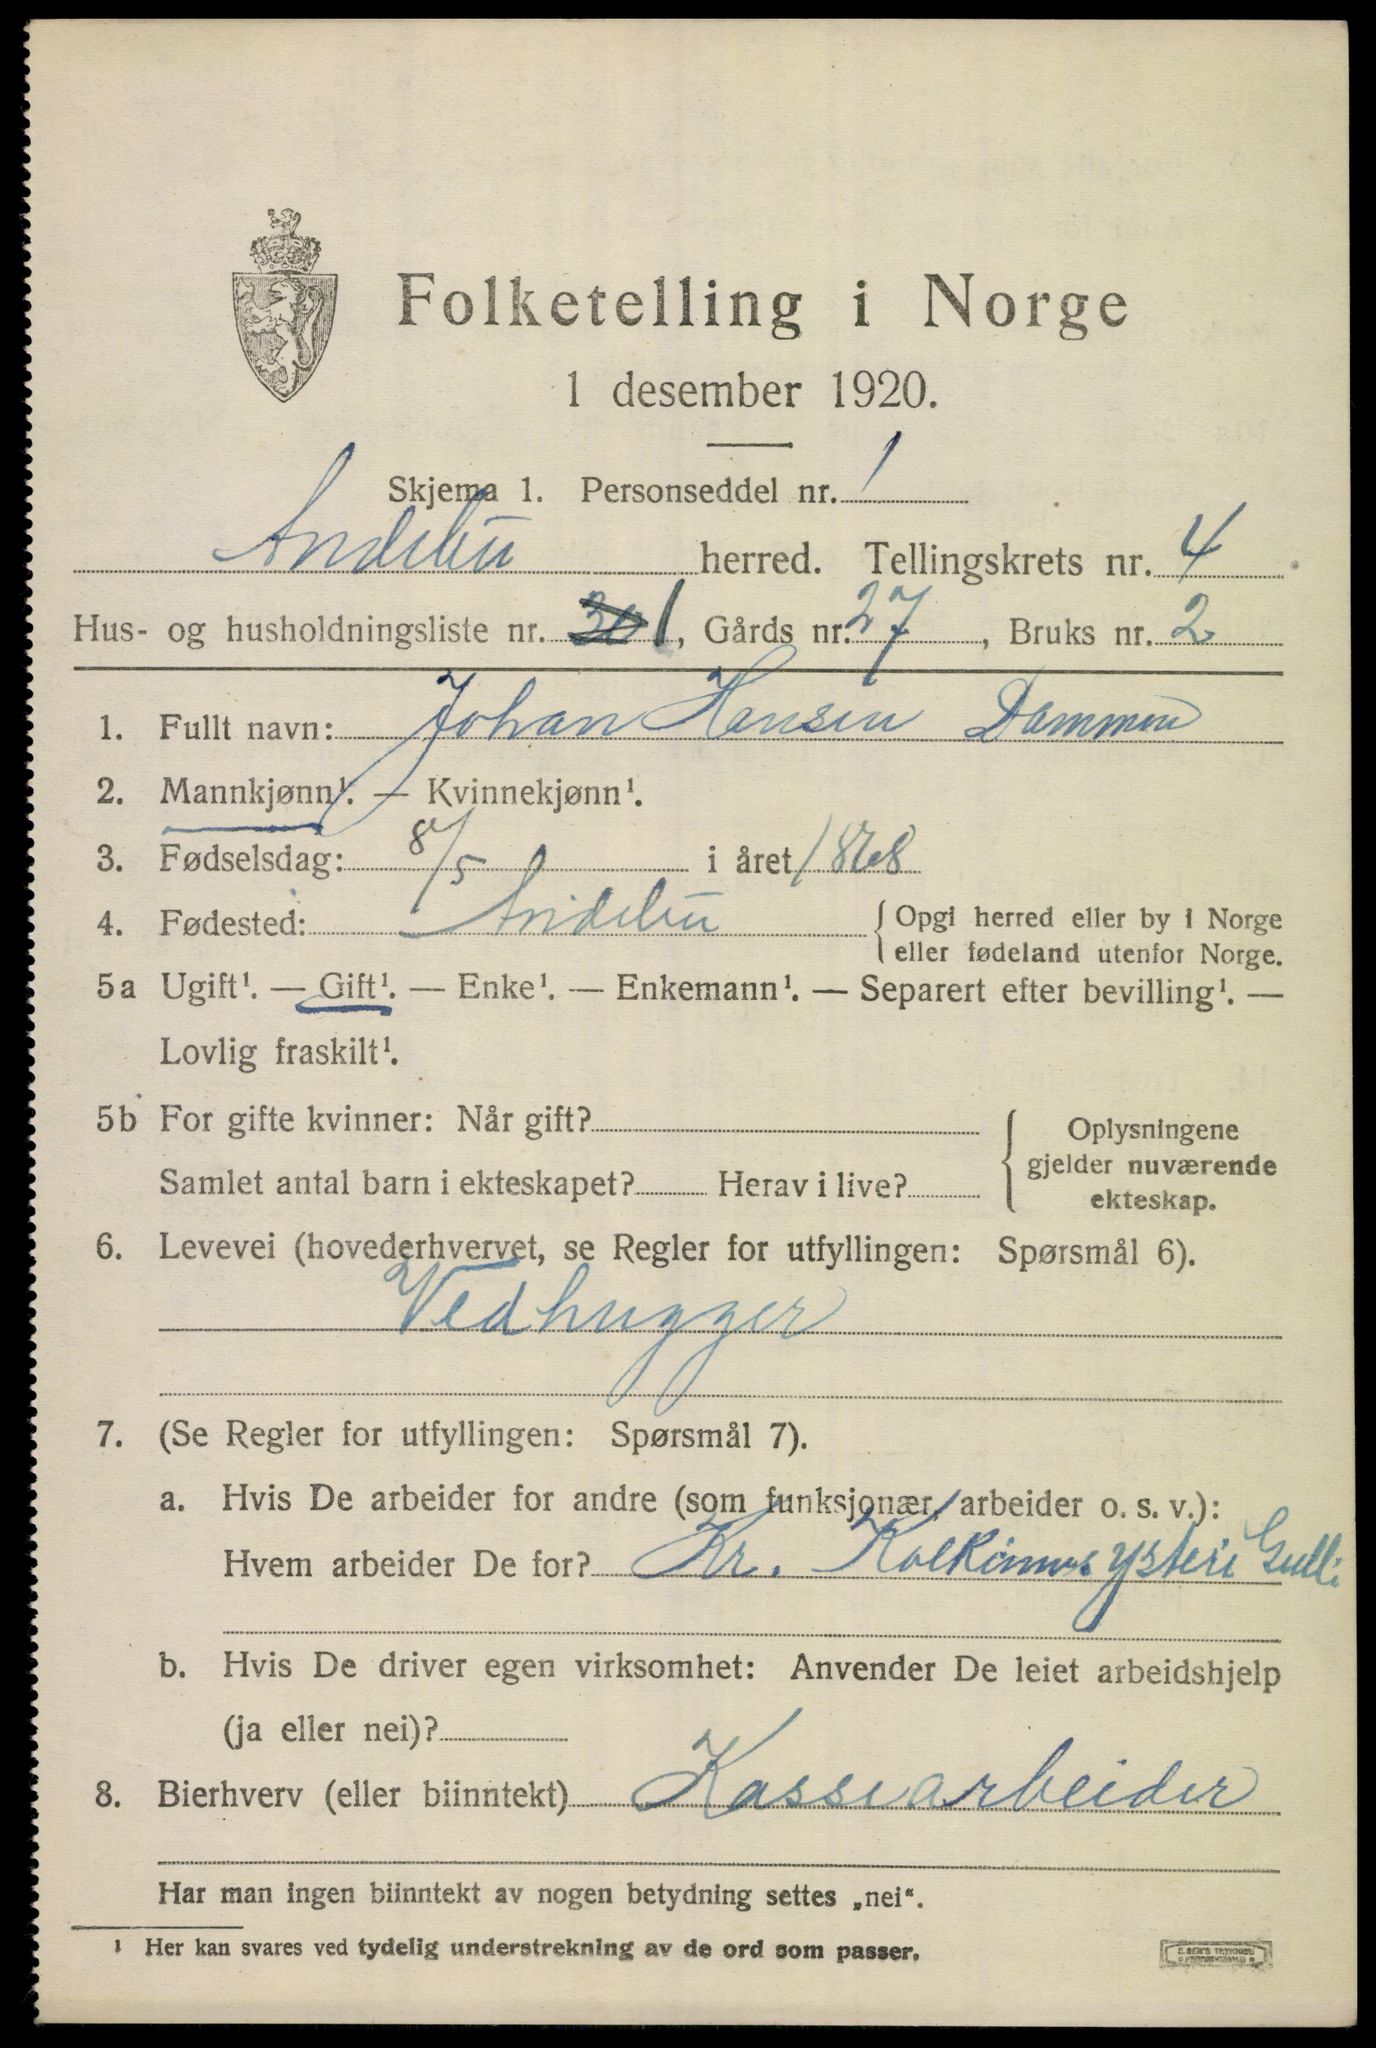 Folketelling i Norge
1 desember 1920.
Skjema 1. Personseddel nr. 1
Andebu herred. Tellingskrets nr. 4
Hus- og husholdningsliste nr. 1, Gårds nr. 27, Bruks nr. 2
1. Fullt navn: Johan Hansen Dammen
2. Mannkjønn¹. — Kvinnekjønn¹.
3. Fødselsdag: 8/5 i året 1868
4. Fødested: Andebu { Opgi herred eller by i Norge
eller fødeland utenfor Norge.
5a Ugift¹. — Gift¹. — Enke¹. — Enkemann¹. — Separert efter bevilling¹. —
Lovlig fraskilt¹.
5b For gifte kvinner: Når gift? { Oplysningene
gjelder nuværende
Samlet antal barn i ekteskapet? Herav i live?
ekteskap.
6. Levevei (hovederhvervet, se Regler for utfyllingen: Spørsmål 6).
Vedhugger
7. (Se Regler for utfyllingen: Spørsmål 7).
a. Hvis De arbeider for andre (som funksjonær, arbeider o. s. v.):
Hvem arbeider De for? Kr. ysteri Gulli
b. Hvis De driver egen virksomhet: Anvender De leiet arbeidshjelp
(ja eller nei)?
8. Bierhverv (eller biinntekt) Kassearbeider
Har man ingen biinntekt av nogen betydning settes „nei“.
¹ Her kan svares ved tydelig understrekning av de ord som passer.